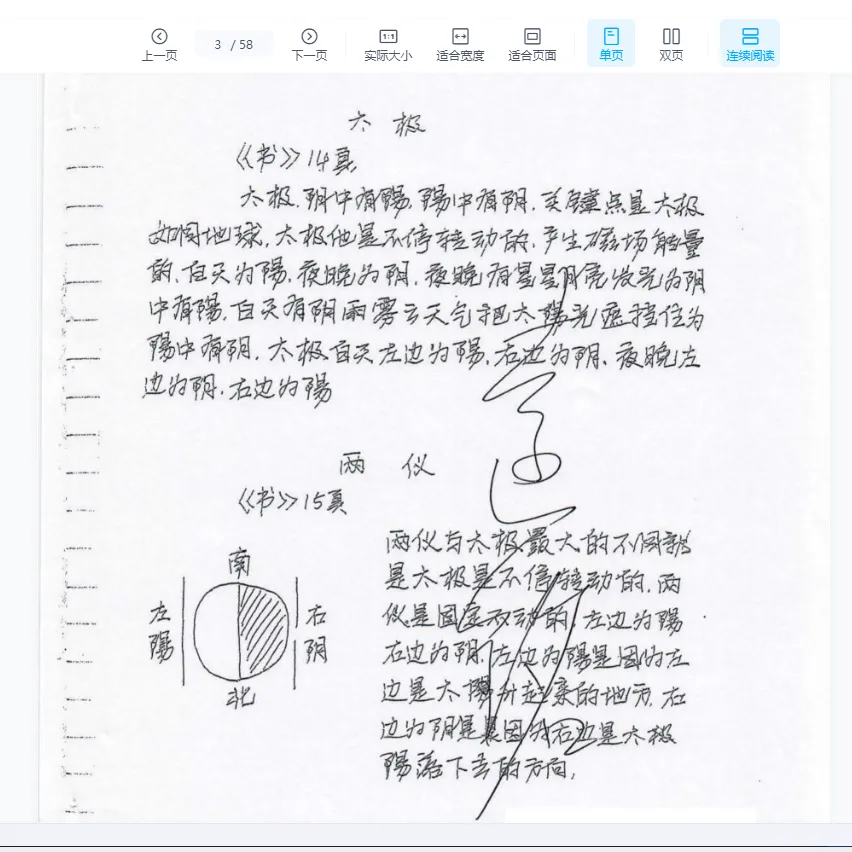 上一页
3 / 58
下一页
1:1
实际大小
适合宽度
适合页面
单页
双页
连续阅读
太 极
《书》14页
太极.阴中有陽.陽中有阴.关键重点是太极
如同地球.太极他是不停转动的.产生磁场能量
的.白天为陽.夜晚为阴.夜晚有星星月亮发光为阴
中有陽.白天有阴雨雾云天气把太陽光遮挡住为
陽中有阴.太极白天左边为陽.右边为阴.夜晚左
边为阴.右边为陽
两 仪
《书》15页
南
左陽
右阴
北
两仪与太极最大的不同就
是太极是不停转动的.两
仪是固定不动的 左边为陽
右边为阴.左边为陽是因为左
边是太陽升起来的地方.右
边为阴是 因为右边是太极
陽落下去的方向,